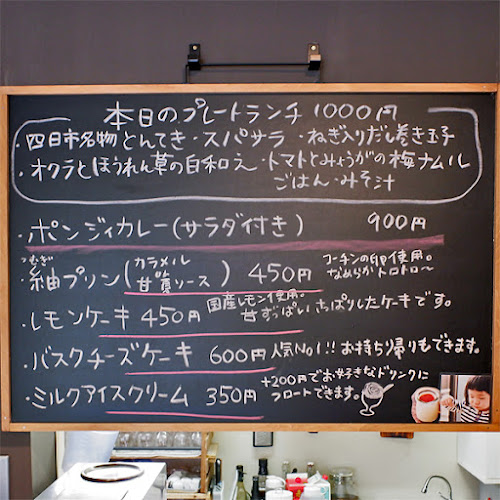 本日のプレートランチ 1000円
・四日市名物とんてき・スパサラ・ねぎ入りだし巻き玉子
・オクラとほうれん草の白和え・トマトとみょうがの梅ナムル
ごはん・みそ汁
・ポンジィカレー(サラダ付き) 900円
つむぎ
・紬プリン(カラメル
甘露ソース) 450円
コーチンの卵使用。
なめらかトロトロ〜
・レモンケーキ 450円
国産レモン使用。
甘ずっぱいさっぱりしたケーキです。
・バスクチーズケーキ 600円 人気No1!! お持ち帰りもできます。
・ミルクアイスクリーム 350円
+200円でお好きなドリンクに
フロートできます。